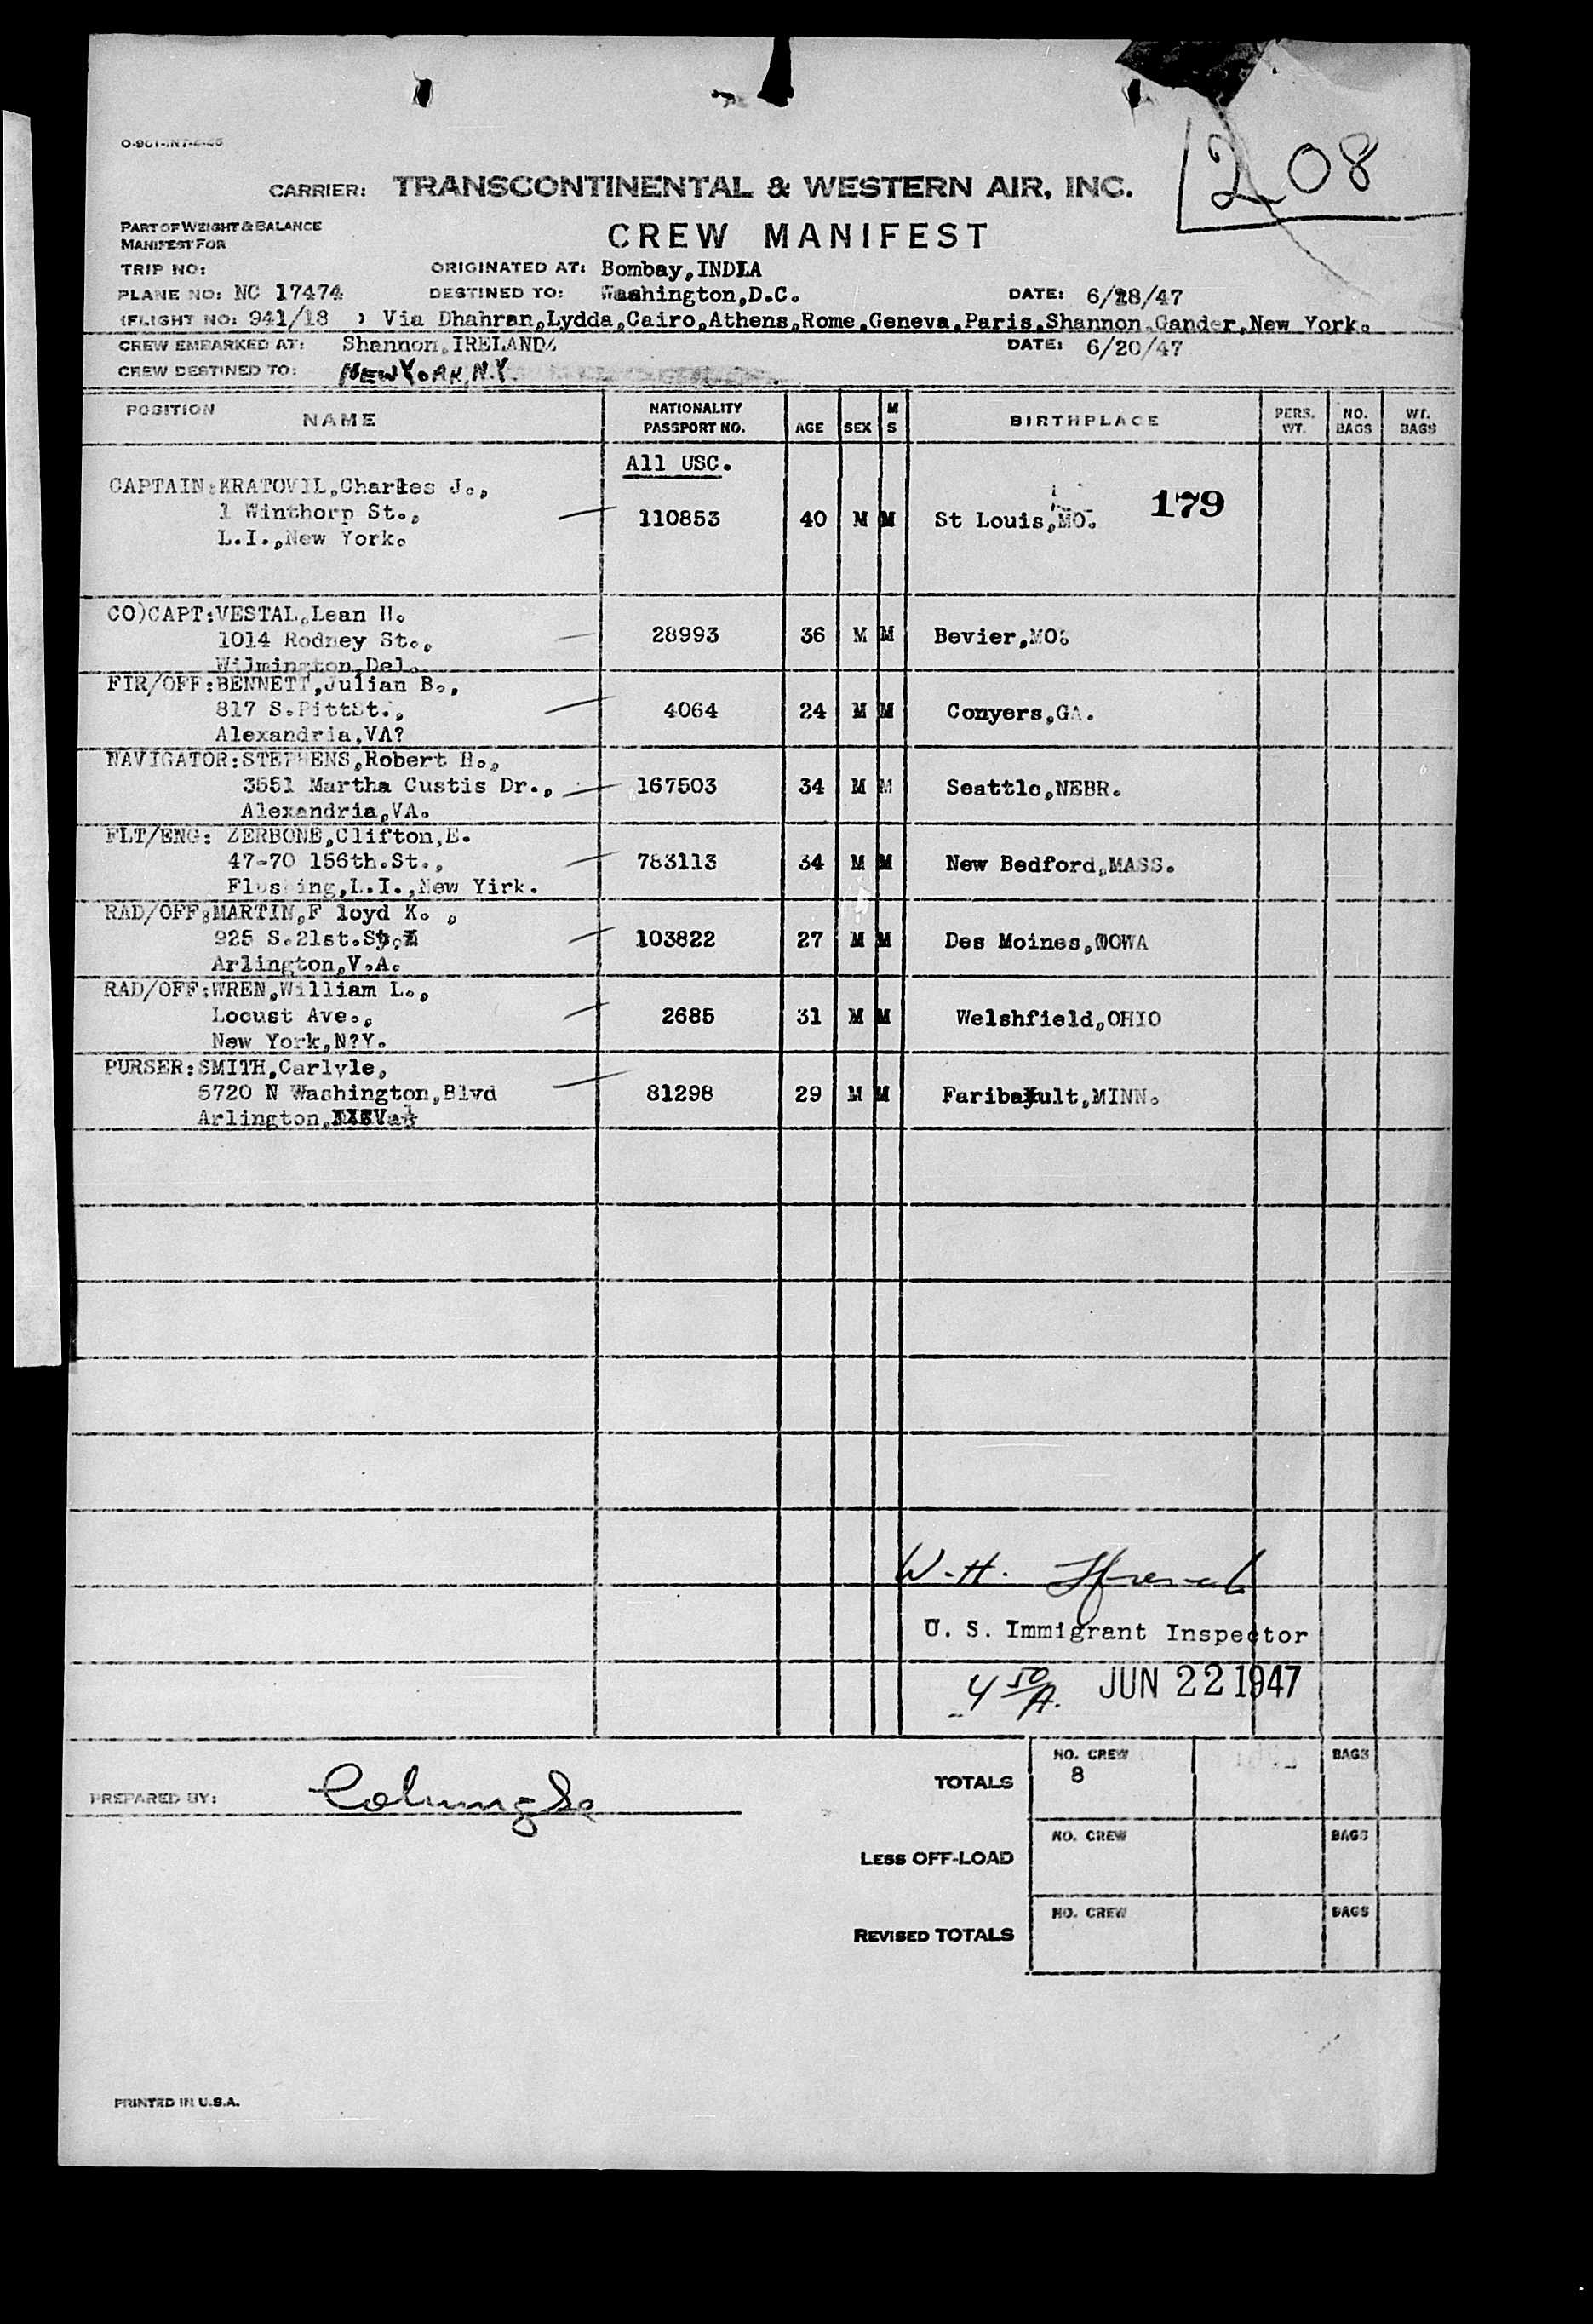 O-901-INT-4-46
208
CARRIER: TRANSCONTINENTAL & WESTERN AIR, INC.
PART OF WEIGHT & BALANCE
MANIFEST FOR
CREW MANIFEST
TRIP NO: ORIGINATED AT: Bombay,INDIA
PLANE NO: NC 17474 DESTINED TO: Washington,D.C. DATE: 6/18/47
(FLIGHT NO: 941/18 ) Via Dhahran,Lydda,Cairo,Athens,Rome,Geneva,Paris,Shannon,Gander,New York.
CREW EMBARKED AT: Shannon,IRELAND DATE: 6/20/47
CREW DESTINED TO: NEW YORK, N.Y.
POSITION NAME NATIONALITY PASSPORT NO. AGE SEX M S BIRTHPLACE PERS. WT. NO. BAGS WT. BAGS
All USC.
CAPTAIN:KRATOVIL,Charles J.,
1 Winthorp St., 110853 40 M M St Louis,MO. 179
L.I.,New York.
CO)CAPT:VESTAL,Lean H.
1014 Rodney St., 28993 36 M M Bevier,MO
Wilmington,Del.
FIR/OFF:BENNETT,Julian B.,
817 S.PittSt., 4064 24 M M Conyers,GA.
Alexandria,VA?
NAVIGATOR:STEPHENS,Robert H.,
3551 Martha Custis Dr., 167503 34 M M Seattle,NEBR.
Alexandria,VA.
FLT/ENG: ZERBONE,Clifton,E.
47-70 156th.St., 783113 34 M M New Bedford,MASS.
Flushing,L.I.,New Yirk.
RAD/OFF:MARTIN,F loyd K. ,
925 S.21st.St. 103822 27 M M Des Moines,IOWA
Arlington,V.A.
RAD/OFF:WREN,William L.,
Locust Ave., 2685 31 M M Welshfield,OHIO
New York,N?Y.
PURSER:SMITH,Carlyle,
5720 N Washington,Blvd 81298 29 M M Faribault,MINN.
Arlington,Va
W. H.
U. S. Immigrant Inspector
4 50/A. JUN 22 1947
PREPARED BY:
TOTALS NO. CREW 8 BAGS
LESS OFF-LOAD NO. CREW BAGS
REVISED TOTALS NO. CREW BAGS
PRINTED IN U.S.A.